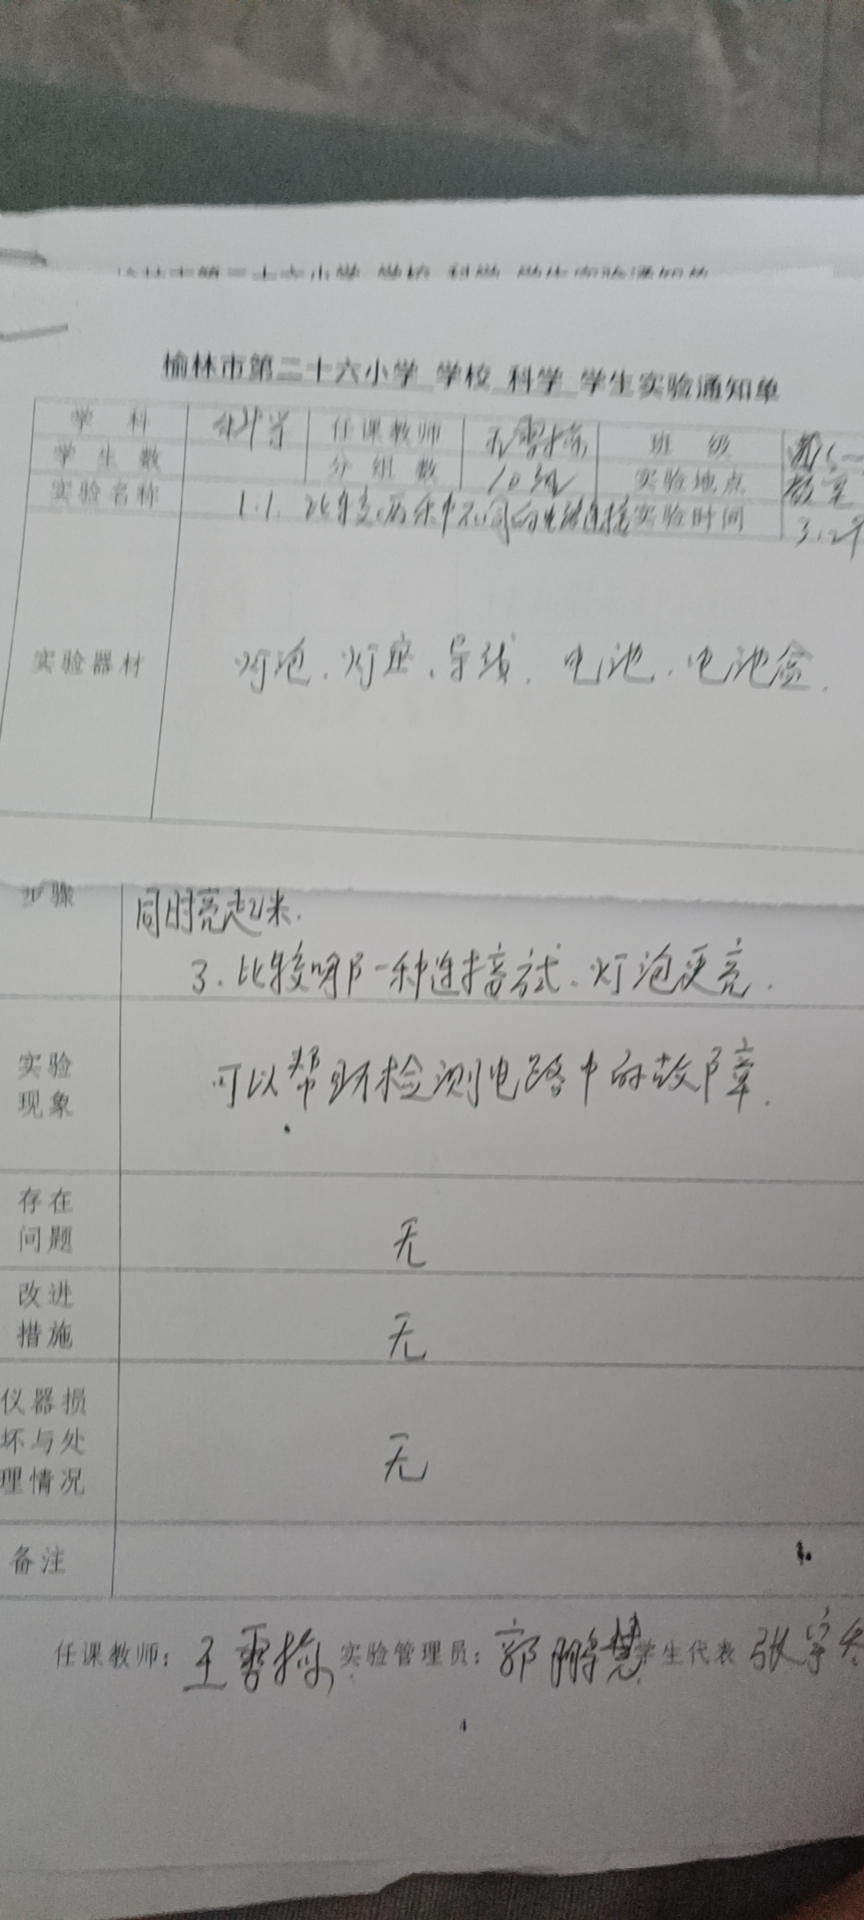 榆林市第二十六小学 学校 科学 学生实验通知单
学科 科学 任课教师 王雪梅 班级
学生数 分组数 10组 实验地点 教室
实验名称 1.1. 比较两种不同的电路连接 实验时间 3.2
实验器材 灯泡、灯座、导线、电池、电池盒.
步骤 同时亮起来.
3. 比较哪一种连接方式、灯泡更亮.
实验
现象 可以帮助检测电路中的故障.
存在
问题 无
改进
措施 无
仪器损
坏与处 无
理情况
备注
任课教师: 王雪梅 实验管理员: 郭鹏慧 学生代表 张宇
4